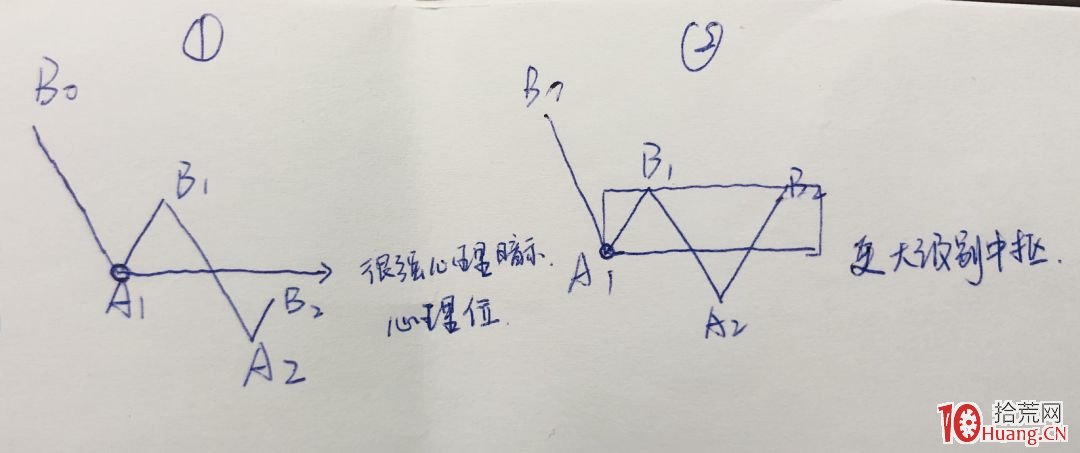 ①
B0
B1
A1
B2
A2
很强心理暗示.
心理位
②
B1
A1
B2
A2
更大级别中枢.
拾荒网
10Huang.CN